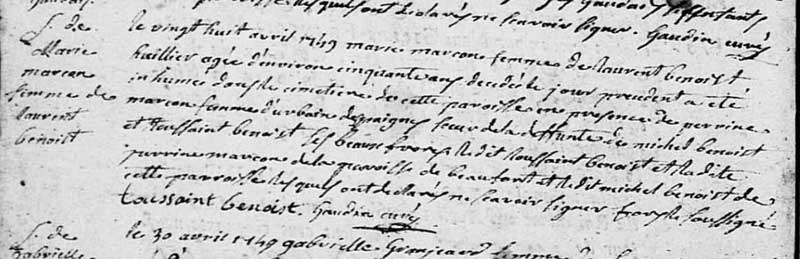 lesquels ont déclarés ne scavoir signer. Gaudin curé
S. de
Marie
marcon
femme de
laurent
benoist
le vingt huit avril 1749 marie marcon femme de laurent benoist
huillier agée d'environ cinquante ans decedée le jour precedent a eté
inhumée dans le cimetiere de cette paroisse en presence de perrine
marcon femme d'urbain despaignes soeur de la deffunte de michel benoist
et toussaint benoist ses beaux freres le dit toussaint benoist et la dite
perrine marcon de la paroisse de beaufort et le dit michel benoist de
cette parroisse lesquels ont declarés ne scavoir signer fors le soussigné
toussaint benoist. Gaudin curé
S. de
Gabrielle
le 30 avril 1749 gabrielle femme